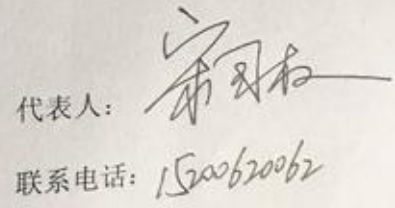 代表人：宋国权
联系电话：15200620062